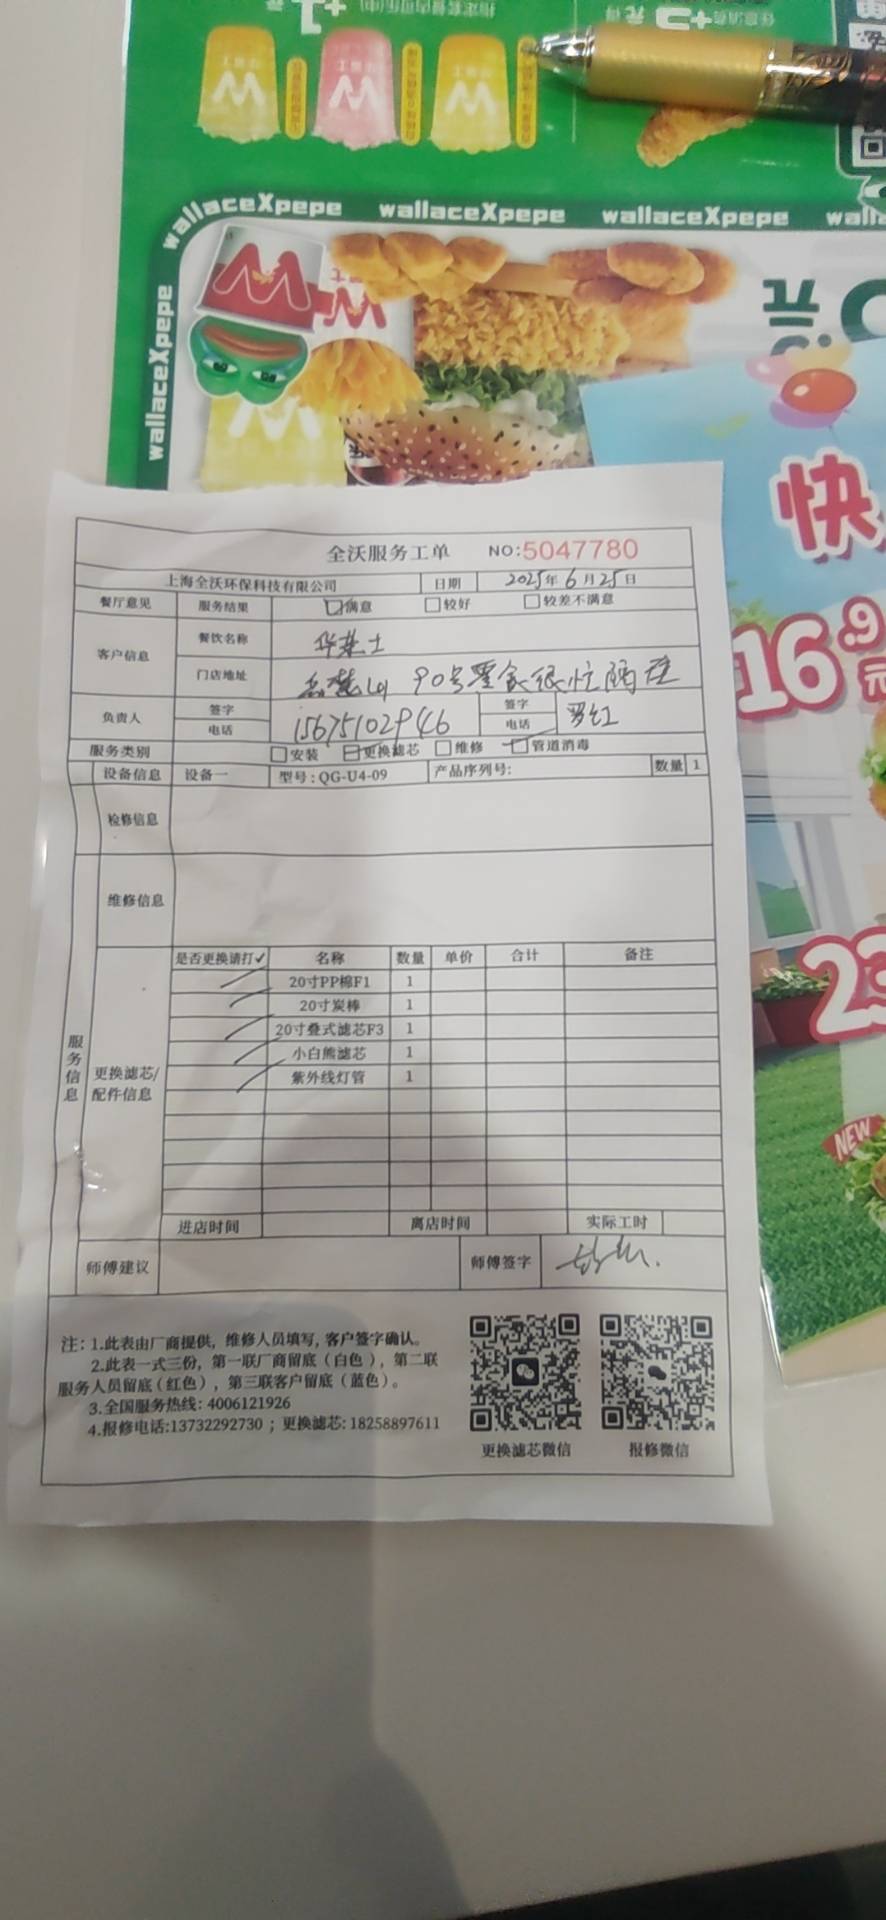 wallaceXpepe wallaceXpepe wallaceXpepe
wallaceXpepe
快
16.9元
23
NEW
全沃服务工单 NO:5047780
上海全沃环保科技有限公司 日期 2025年6月25日
餐厅意见 服务结果 满意 较好 较差不满意
客户信息 餐饮名称 华莱士
门店地址 90号零食很忙隔壁
负责人 签字 签字
电话 15675102946 电话 罗红
服务类别 安装 更换滤芯 维修 管道消毒
设备信息 设备一 型号:QG-U4-09 产品序列号: 数量 1
检修信息
维修信息
服务信息
更换滤芯/配件信息
是否更换请打✓ 名称 数量 单价 合计 备注
20寸PP棉F1 1
20寸炭棒 1
20寸叠式滤芯F3 1
小白熊滤芯 1
紫外线灯管 1
进店时间 离店时间 实际工时
师傅建议 师傅签字
注: 1.此表由厂商提供, 维修人员填写, 客户签字确认。
2.此表一式三份, 第一联厂商留底(白色), 第二联
服务人员留底(红色), 第三联客户留底(蓝色)。
3.全国服务热线: 4006121926
4.报修电话:13732292730 ; 更换滤芯: 18258897611
更换滤芯微信 报修微信